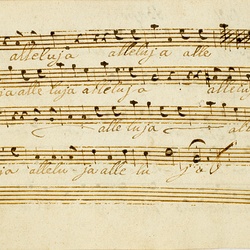 alleluja alleluja alle
ia alle luja alleluja allelu
alle luja alleluja
ia allelu-ja alle lu ja